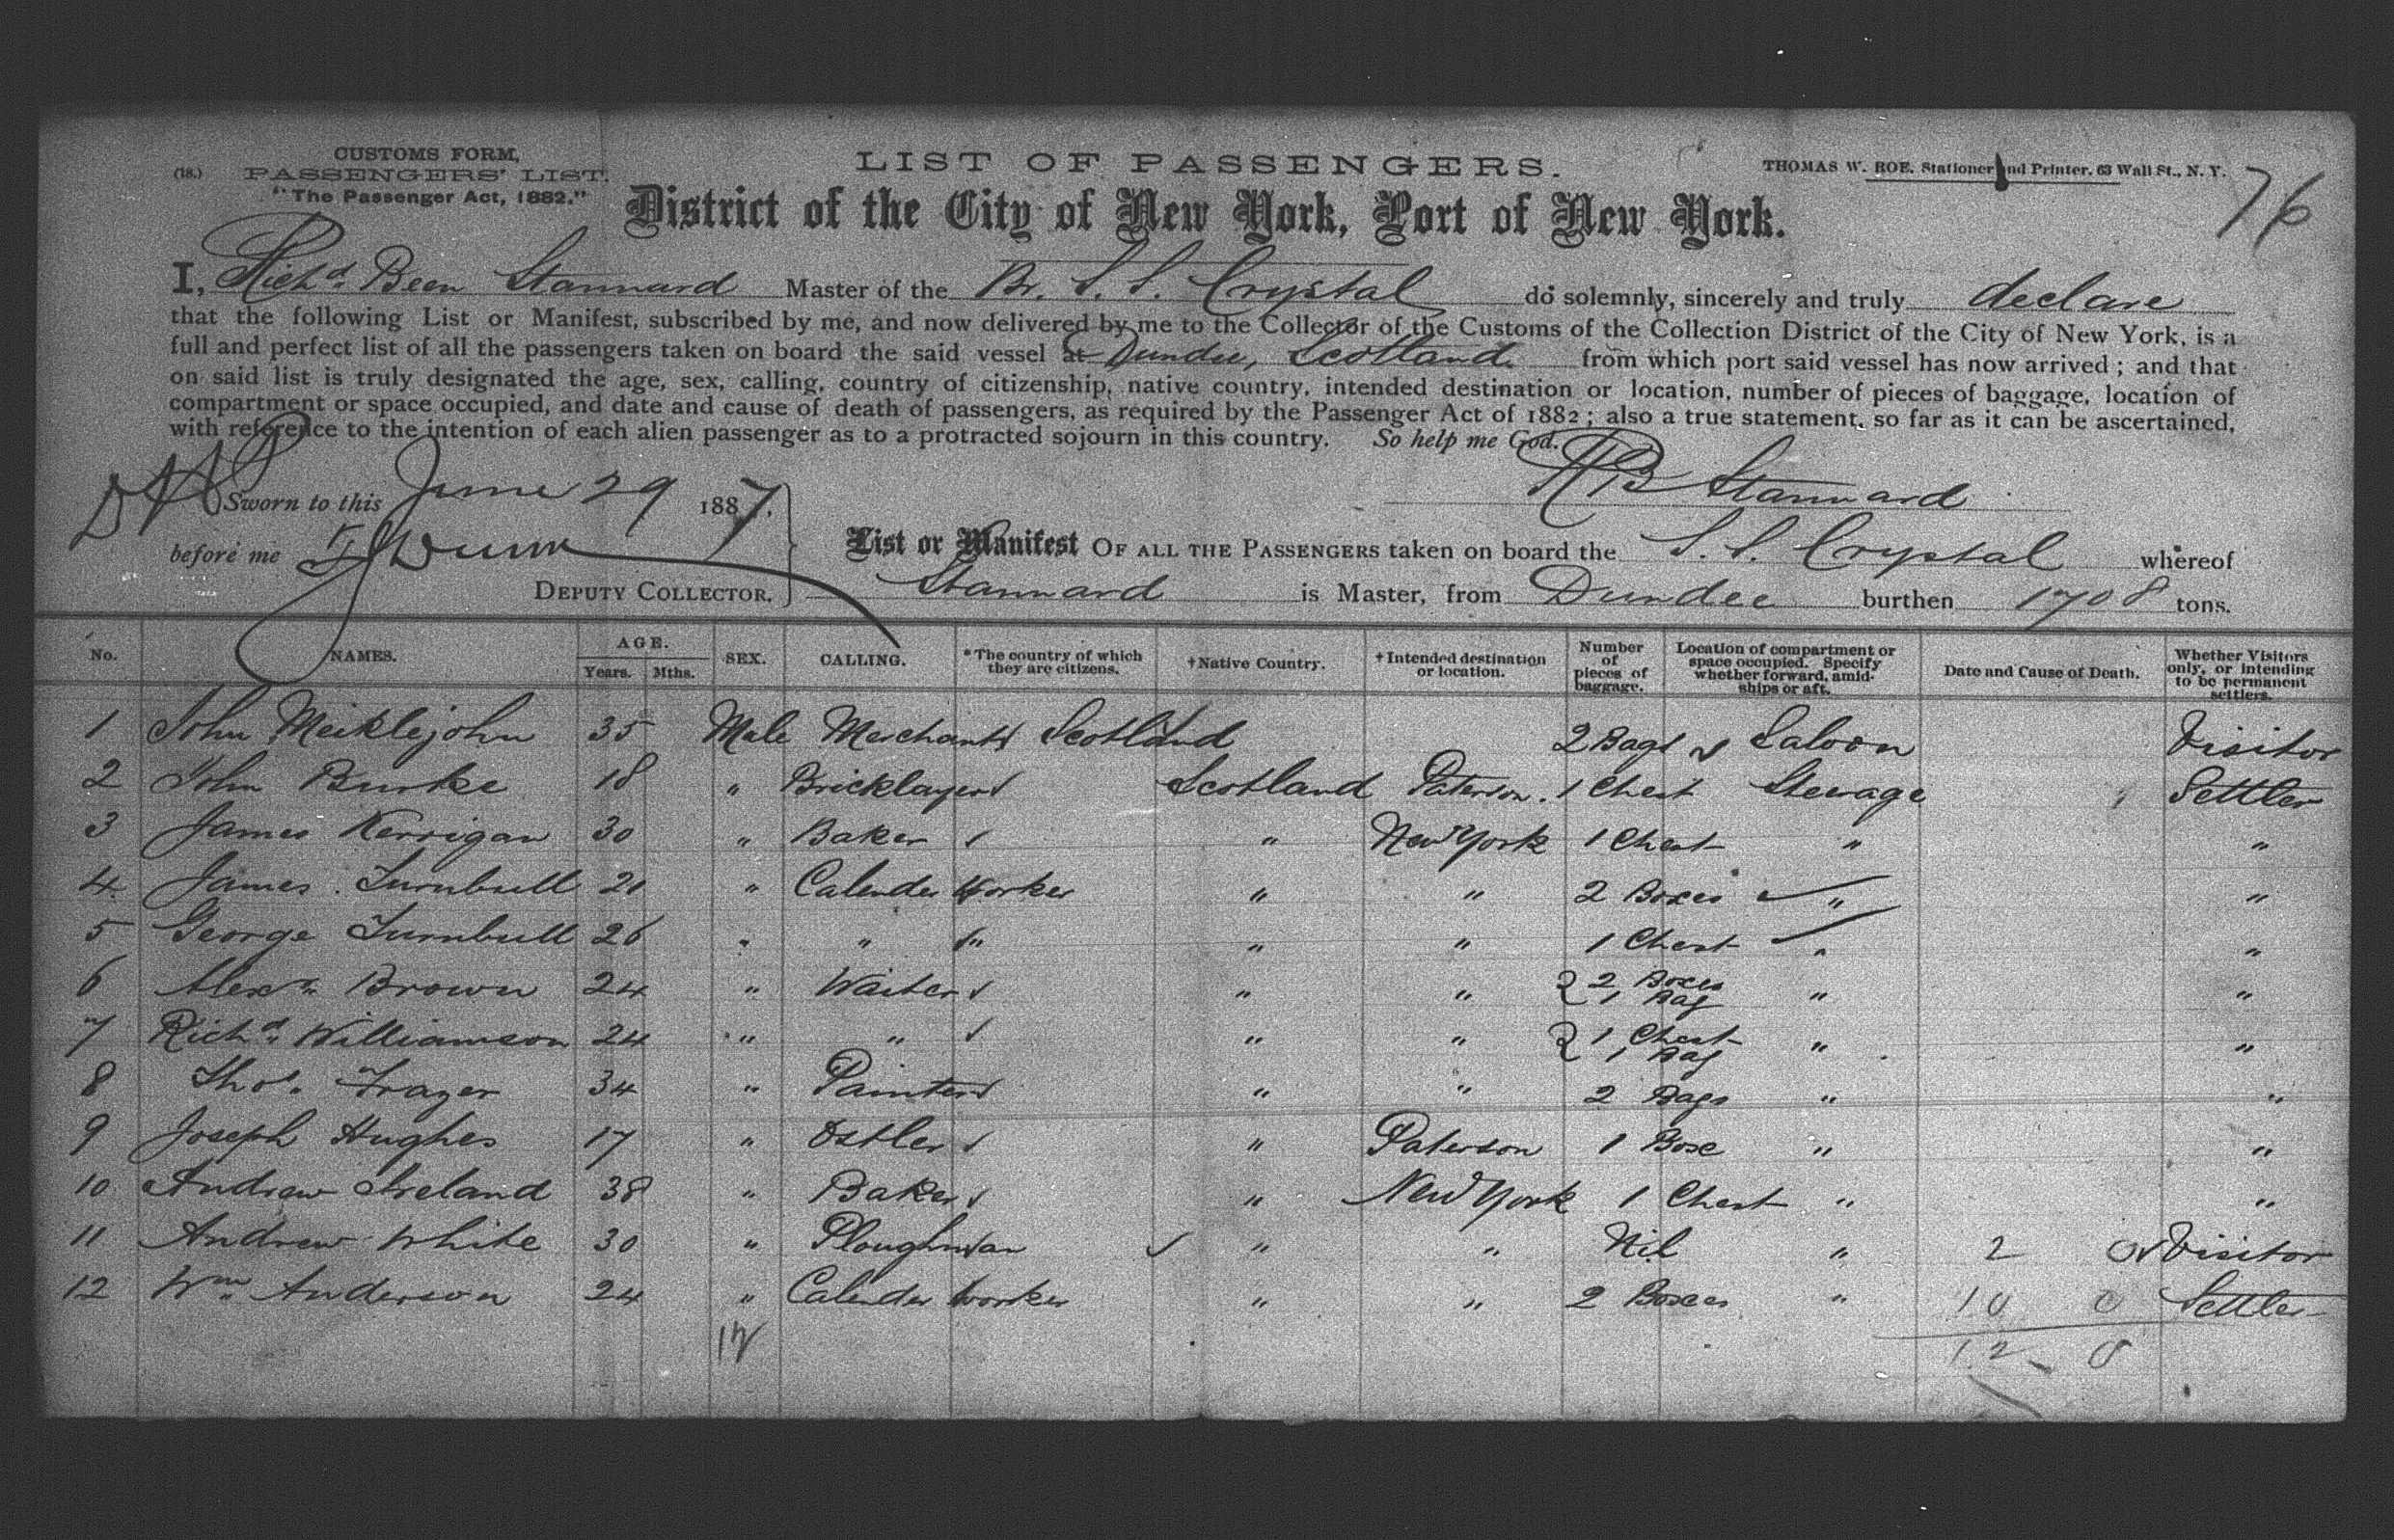 CUSTOMS FORM,
(18.) PASSENGERS' LIST.
"The Passenger Act, 1882."
LIST OF PASSENGERS.
THOMAS W. ROE, Stationer and Printer, 63 Wall St., N. Y.
76
District of the City of New York, Port of New York.
I, Richd. Been Stannard Master of the Br. S. S. Crystal do solemnly, sincerely and truly declare
that the following List or Manifest, subscribed by me, and now delivered by me to the Collector of the Customs of the Collection District of the City of New York, is a
full and perfect list of all the passengers taken on board the said vessel at Dundee, Scotland. from which port said vessel has now arrived; and that
on said list is truly designated the age, sex, calling, country of citizenship, native country, intended destination or location, number of pieces of baggage, location of
compartment or space occupied, and date and cause of death of passengers, as required by the Passenger Act of 1882; also a true statement, so far as it can be ascertained,
with reference to the intention of each alien passenger as to a protracted sojourn in this country. So help me God.
R B Stannard
Sworn to this June 29 1887,
before me
DEPUTY COLLECTOR.
List or Manifest OF ALL THE PASSENGERS taken on board the S. S. Crystal whereof
Stannard is Master, from Dundee burthen 1708 tons.
No. NAMES. AGE. Years. Mths. SEX. CALLING. *The country of which they are citizens. †Native Country. †Intended destination or location. Number of pieces of baggage. Location of compartment or space occupied. Specify whether forward, amidships or aft. Date and Cause of Death. Whether Visitors only, or intending to be permanent settlers.
1 John Meiklejohn 35 Male Merchant Scotland 2 Bags Saloon Visitor
2 John Burke 18 " Bricklayer Scotland Paterson. 1 Chest Steerage Settler
3 James Kerrigan 30 " Baker " New York 1 Chest " "
4 James Turnbull 21 " Calender Worker " " 2 Boxes " "
5 George Turnbull 26 " " " " " 1 Chest " "
6 Alexr. Brown 24 " Waiter " " 2 Boxes 1 Bag " "
7 Richd. Williamson 24 " " " " 1 Chest 1 Bag " "
8 Thos. Frazer 34 " Painter " " 2 Bags " "
9 Joseph Hughes 17 " Ostler " Paterson 1 Box " "
10 Andrew Ireland 38 " Baker " New York 1 Chest " "
11 Andrew White 30 " Ploughman " " Nil " 2 Visitor
12 Wm. Anderson 24 " Calender Worker " " 2 Boxes " 10 0 Settler
12
12 0